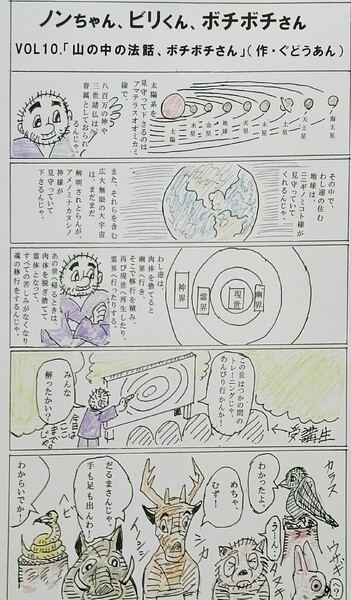 ノンちゃん、ビリくん、ボチボチさん
VOL10.「山の中の法話、ボチボチさん」(作・ぐどうあん)
太陽系を
見守って下さるのは
アマテラスオオミカミ
様で、
八百万の神や
三世諸仏は
眷属としておられ
るんじゃ。
太陽
水星
金星
地球
火星
木星
土星
天王星
海王星
その中で、
わし達の住む
地球は
ニニギノミコト様が
見守っていて
くれるんじゃ。
また、それらを含む
広大無限の大宇宙
は、まだまだ
解明されとらんが、
アメノミナカヌシノ
神様が
見守っていて
下さるんじゃ。
わし達は、
肉体を捨てると
幽界へ行き、
そこで修行を積み、
再び現世へ再生したり、
霊界へ行ったりする。
あの世へ帰るときは、
肉体を脱ぎ捨てて
霊体となって、
すべての苦しみがなくなり
魂の修行をするんじゃ。
神界
霊界
現世
幽界
この世はつかの間の
トレーニングじゃ。
のんびり行かんか!
みんな
解ったかい?
今日は
ここ
まで。
受講生
カラス
わかったよ。
うーん
ウサギ
へ?
タヌキ
めちゃ
むず!
シカ
だるまさんじゃ。
手も足も出んわ!
イノシシ
ヘビ
わからいでか!